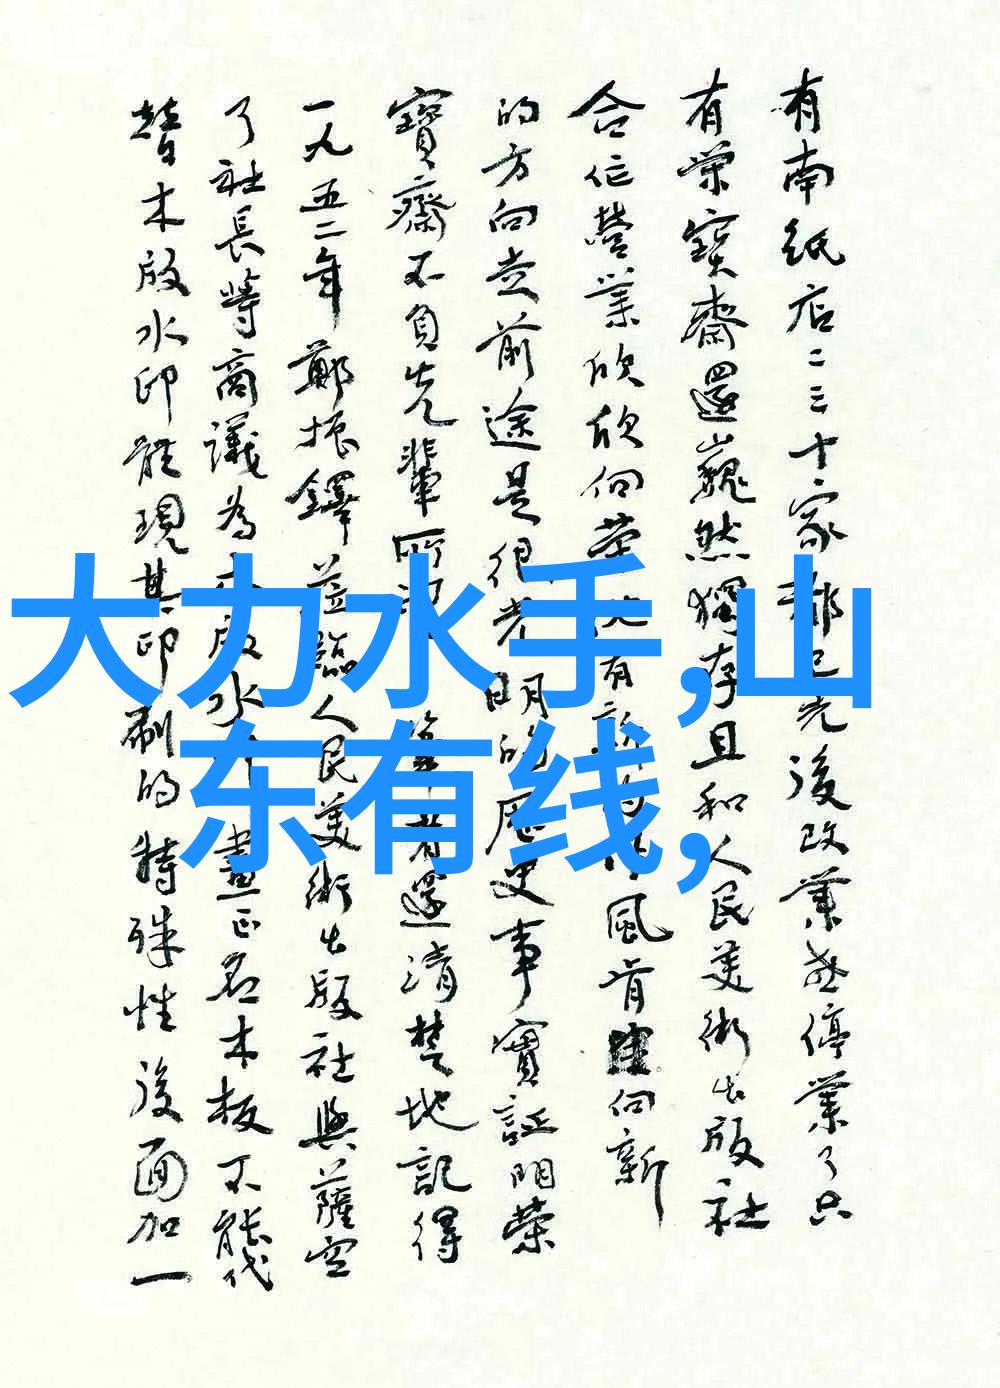 有南纸店二三十家都已先後改業或停業了只
有荣寳齋還巍然獨存且和人民美術出版社
合作營業欣欣向荣地有新的作風肯向新
的方向走前途是很光明的历史事實証明荣
寳齋不負先輩所望筆者還清楚地記得
一九五二年鄭振鐸蒞臨人民美術出版社與薩空
了社長等商議為木版水印畫正名木板不能代
替木版水印能現其印刷的特殊性後面加一
大力水手,山
东有线,